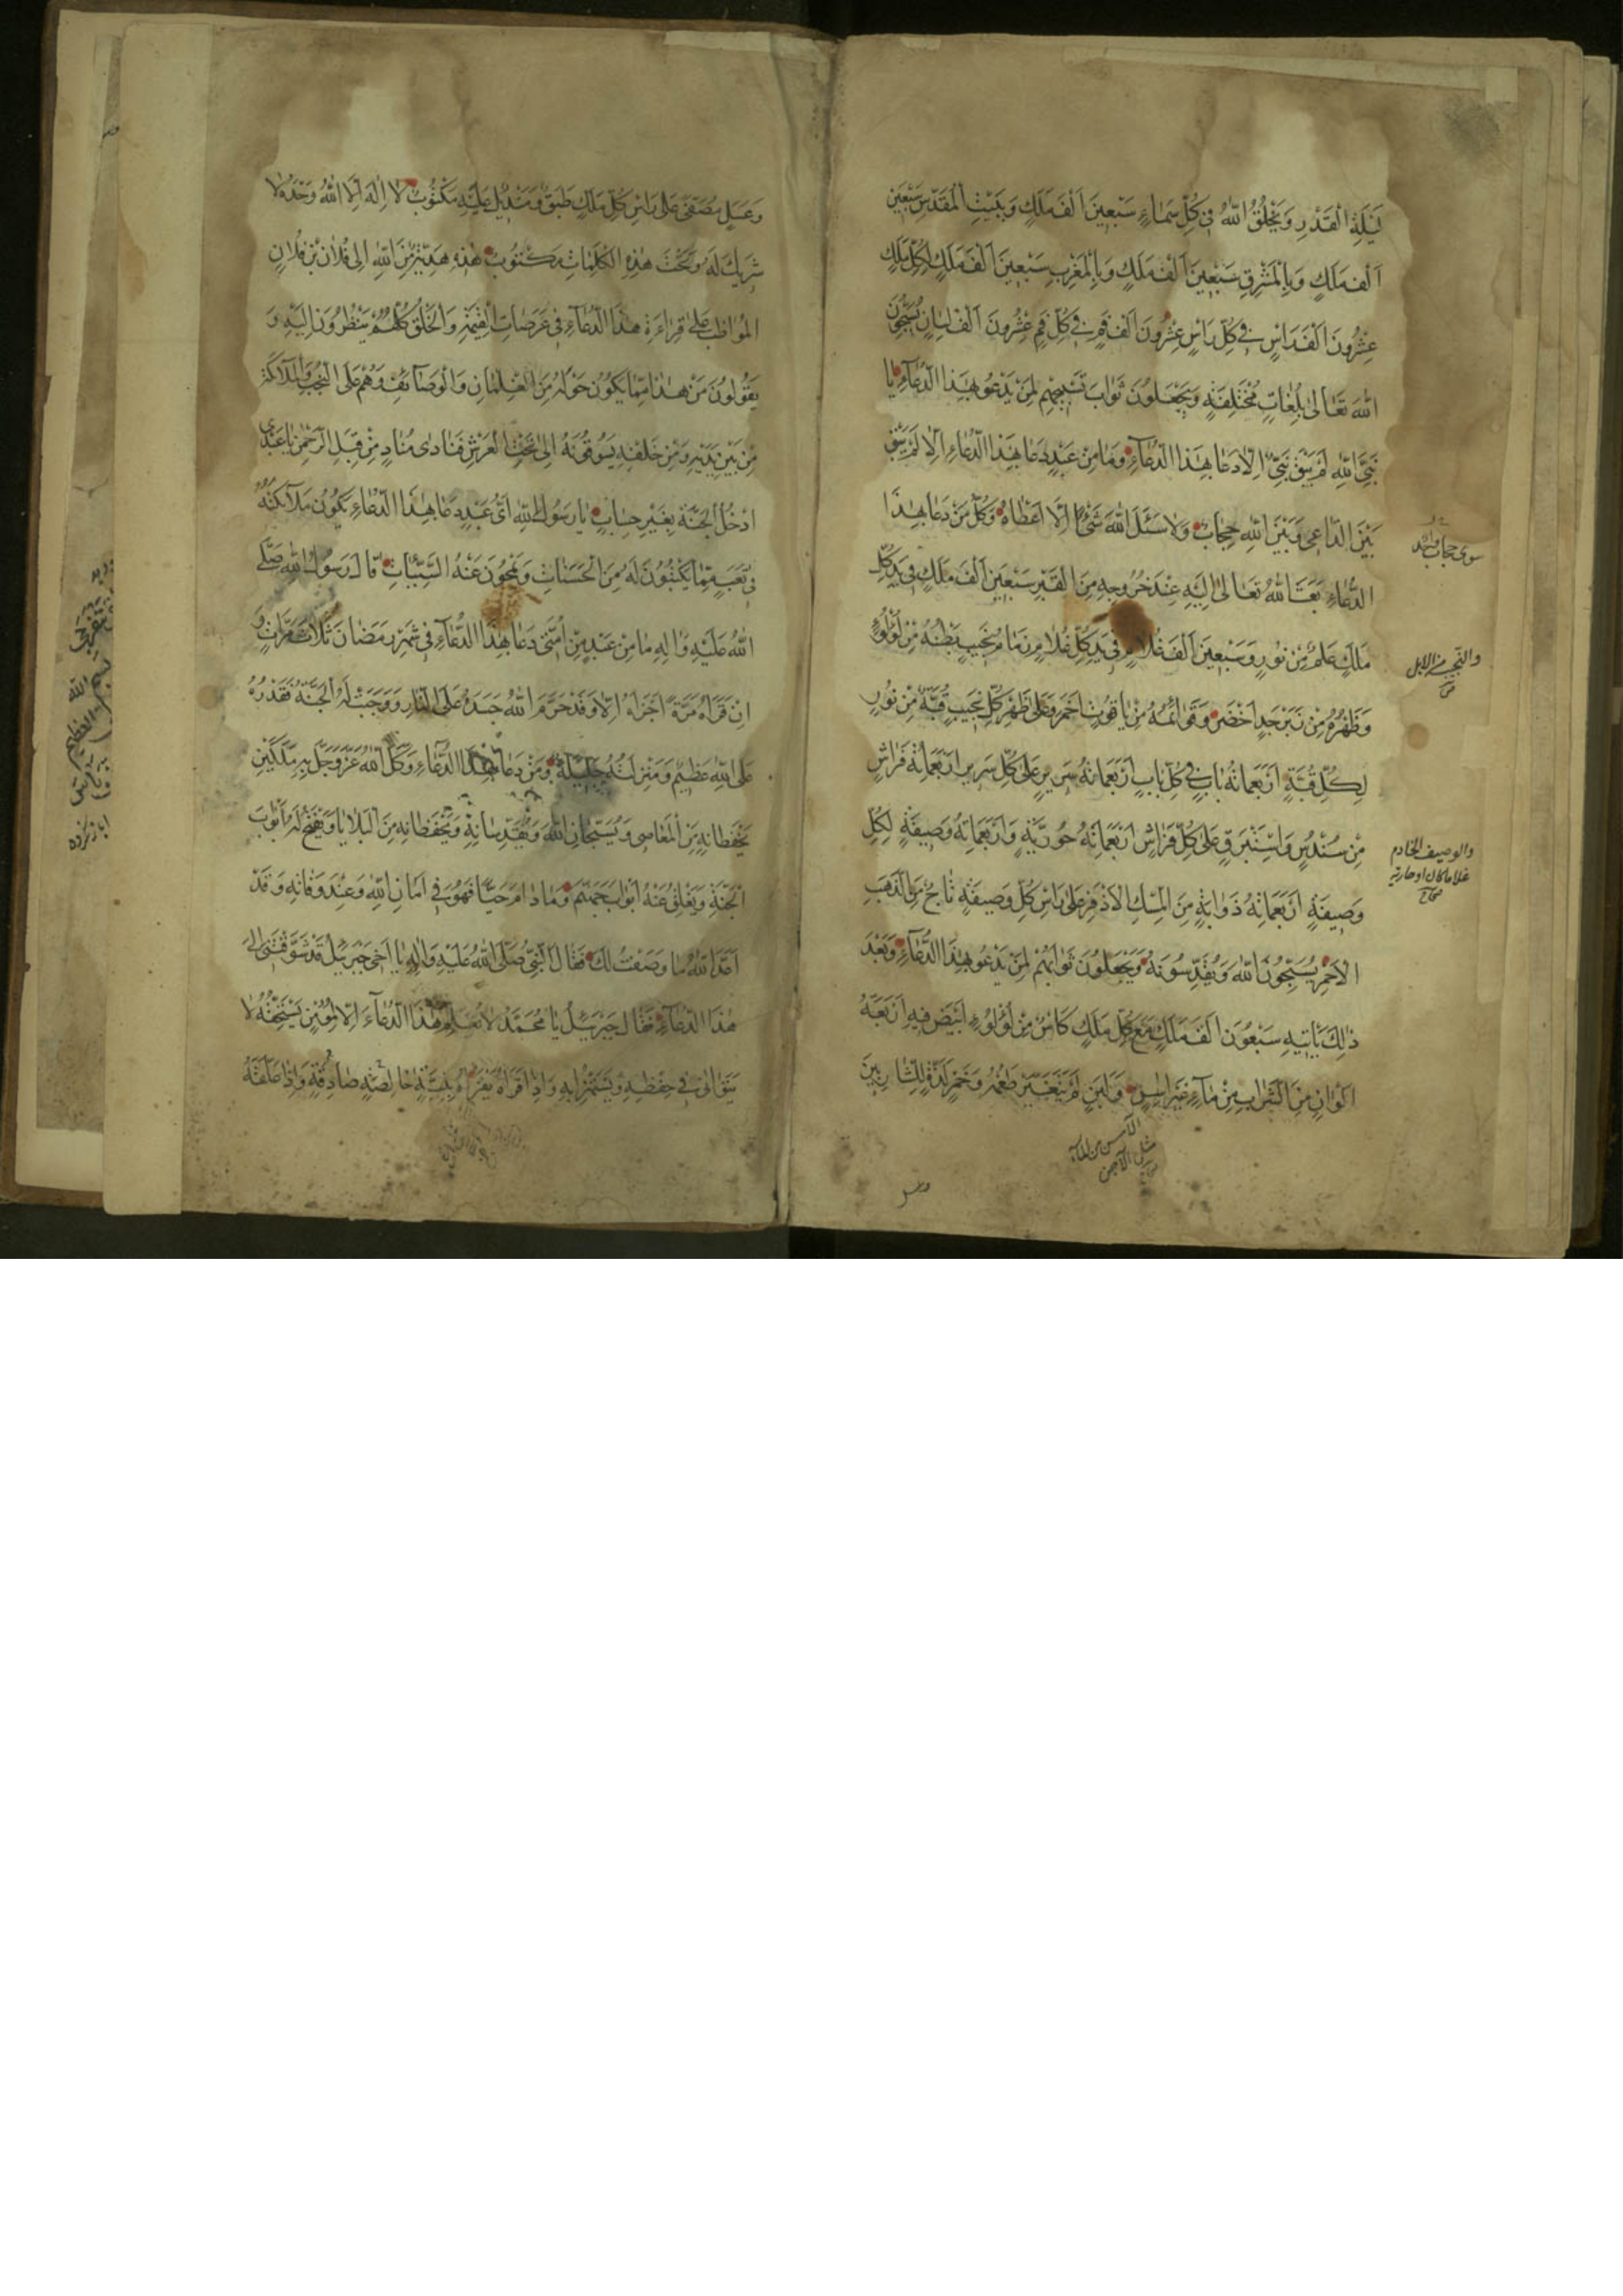 لَيْلَةِ الْقَدْرِ وَيَخْلُقُ اللّٰهُ فِي كُلِّ سَمَاءٍ سَبْعِينَ اَلْفَ مَلَكٍ وَبِبَيْتِ الْمَقْدِسِ سَبْعِينَ
اَلْفَ مَلَكٍ وَبِالْمَشْرِقِ سَبْعِينَ اَلْفَ مَلَكٍ وَبِالْمَغْرِبِ سَبْعِينَ اَلْفَ مَلَكٍ لِكُلِّ مَلَكٍ
عِشْرُونَ اَلْفَ رَاْسٍ فِي كُلِّ رَاْسٍ عِشْرُونَ اَلْفَ فَمٍ فِي كُلِّ فَمٍ عِشْرُونَ اَلْفَ لِسَانٍ يُسَبِّحُونَ
اللّٰهَ تَعَالٰى بِلُغَاتٍ مُخْتَلِفَةٍ وَيَجْعَلُونَ ثَوَابَ تَسْبِيحِهِمْ لِمَنْ يَدْعُو بِهٰذَا الدُّعَاءِ يَا
نَبِيَّ اللّٰهِ لَمْ يَبْقَ نَبِيٌّ اِلَّا دَعَا بِهٰذَا الدُّعَاءِ وَمَا مِنْ عَبْدٍ دَعَا بِهٰذَا الدُّعَاءِ اِلَّا لَمْ يَبْقَ
بَيْنَ الدَّاعِي وَبَيْنَ اللّٰهِ حِجَابٌ وَلَا سَئَلَ اللّٰهَ شَيْئًا اِلَّا اَعْطَاهُ وَكُلُّ مَنْ دَعَا بِهٰذَا
سوى حجاب واحد
الدُّعَاءِ بَعَثَ اللّٰهُ تَعَالٰى اِلَيْهِ عِنْدَ خُرُوجِهِ مِنَ الْقَبْرِ سَبْعِينَ اَلْفَ مَلَكٍ فِي يَدِ كُلِّ
مَلَكٍ عَلَمٌ مِنْ نُورٍ وَسَبْعِينَ اَلْفَ غُلَامٍ فِي يَدِ كُلِّ غُلَامٍ زِمَامُ نَجِيبٍ بَطْنُهُ مِنْ لُؤْلُؤٍ
والنجيب من الابل
وَظَهْرُهُ مِنْ زَبَرْجَدٍ اَخْضَرَ وَقَوَائِمُهُ مِنْ يَاقُوتٍ اَحْمَرَ وَعَلٰى ظَهْرِ كُلِّ نَجِيبٍ قُبَّةٌ مِنْ نُورٍ
لِكُلِّ قُبَّةٍ اَرْبَعُمِائَةُ بَابٍ فِي كُلِّ بَابٍ اَرْبَعُمِائَةُ سَرِيرٍ عَلٰى كُلِّ سَرِيرٍ اَرْبَعُمِائَةُ فِرَاشٍ
مِنْ سُنْدُسٍ وَاِسْتَبْرَقٍ عَلٰى كُلِّ فِرَاشٍ اَرْبَعُمِائَةُ حُورِيَّةٍ وَاَرْبَعُمِائَةُ وَصِيفَةٍ لِكُلِّ
والوصيف الخادم
غلاما كان او جارية
صحاح
وَصِيفَةٍ اَرْبَعُمِائَةُ ذَوَابَةٍ مِنَ الْمِسْكِ الْاَذْفَرِ عَلٰى رَاْسِ كُلِّ وَصِيفَةٍ تَاجٌ مِنَ الذَّهَبِ
الْاَحْمَرِ يُسَبِّحُونَ اللّٰهَ وَيُقَدِّسُونَهُ وَيَجْعَلُونَ ثَوَابَهُمْ لِمَنْ يَدْعُو بِهٰذَا الدُّعَاءِ وَبَعْدَ
ذٰلِكَ يَأْتِيهِ سَبْعُونَ اَلْفَ مَلَكٍ مَعَ كُلِّ مَلَكٍ كَاْسٌ مِنْ لُؤْلُؤٍ اَبْيَضَ فِيهِ اَرْبَعَةُ
اَلْوَانٍ مِنَ الشَّرَابِ مِنْ مَاءٍ غَيْرِ اٰسِنٍ وَلَبَنٍ لَمْ يَتَغَيَّرْ طَعْمُهُ وَخَمْرٍ لَذَّةٍ لِلشَّارِبِينَ
الآسن من الماء
مثل الآجن
وعسل
وَعَسَلٍ مُصَفًّى عَلٰى رَاْسِ كُلِّ مَلَكٍ طَبَقٌ وَمِنْدِيلٌ عَلَيْهِ مَكْتُوبٌ لَا اِلٰهَ اِلَّا اللّٰهُ وَحْدَهُ لَا
شَرِيكَ لَهُ وَتَحْتَ هٰذِهِ الْكَلِمَاتِ مَكْتُوبٌ هٰذِهِ هَدِيَّةٌ مِنَ اللّٰهِ اِلٰى فُلَانِ بْنِ فُلَانٍ
الْمُوَاظِبِ عَلٰى قِرَاءَةِ هٰذَا الدُّعَاءِ فِي عَرَصَاتِ الْقِيٰمَةِ وَالْخَلْقُ كُلُّهُمْ يَنْظُرُونَ اِلَيْهِ وَ
يَقُولُونَ مَنْ هٰذَا مِمَّا يَكُونُ حَوْلَهُ مِنَ الْغِلْمَانِ وَالْوَصَائِفِ وَهُمْ عَلَى النُّجُبِ وَالْمَلَائِكَةُ
مِنْ بَيْنِ يَدَيْهِ وَمِنْ خَلْفِهِ يَسُوقُونَهُ اِلٰى تَحْتِ الْعَرْشِ فَنَادٰى مُنَادٍ مِنْ قِبَلِ الرَّحْمٰنِ يَا عَبْدِي
ادْخُلِ الْجَنَّةَ بِغَيْرِ حِسَابٍ يَا رَسُولَ اللّٰهِ اَيُّ عَبْدٍ دَعَا بِهٰذَا الدُّعَاءِ يَكُونُ مَلَائِكَتُهُ
فِي تَعَبٍ مِمَّا يَكْتُبُونَ لَهُ مِنَ الْحَسَنَاتِ وَيَمْحُونَ عَنْهُ السَّيِّئَاتِ قَالَ رَسُولُ اللّٰهِ صَلَّى
اللّٰهُ عَلَيْهِ وَاٰلِهِ مَا مِنْ عَبْدٍ مِنْ اُمَّتِي دَعَا بِهٰذَا الدُّعَاءِ فِي شَهْرِ رَمَضَانَ ثَلَاثَ مَرَّاتٍ وَ
اِنْ قَرَاَهُ مَرَّةً اَجْزَاَهُ اِلَّا وَقَدْ حَرَّمَ اللّٰهُ جَسَدَهُ عَلَى النَّارِ وَوَجَبَتْ لَهُ الْجَنَّةُ فَقَدْرُهُ
عَلَى اللّٰهِ عَظِيمٌ وَمَنْزِلَتُهُ جَلِيلَةٌ وَمَنْ دَعَا بِهٰذَا الدُّعَاءِ وَكَّلَ اللّٰهُ عَزَّ وَجَلَّ بِهِ مَلَكَيْنِ
يَحْفَظَانِهِ مِنَ الْمَعَاصِي وَيُسَبِّحَانِ اللّٰهَ وَيُقَدِّسَانِهِ وَيَحْفَظَانِهِ مِنَ الْبَلَايَا وَيَفْتَحُ لَهُ اَبْوَابَ
الْجَنَّةِ وَيُغْلِقُ عَنْهُ اَبْوَابَ جَهَنَّمَ وَمَا دَامَ حَيًّا فَهُوَ فِي اَمَانِ اللّٰهِ وَعِنْدَ وَفَاتِهِ وَقَدْ
اَعَدَّ اللّٰهُ لَهُ مَا وَصَفْتُ لَكَ فَقَالَ النَّبِيُّ صَلَّى اللّٰهُ عَلَيْهِ وَاٰلِهِ يَا اَخِي جَبْرَئِيلُ قَدْ شَوَّقْتَنِي اِلٰى
هٰذَا الدُّعَاءِ فَقَالَ جَبْرَئِيلُ يَا مُحَمَّدُ لَا تُعَلِّمْ هٰذَا الدُّعَاءَ اِلَّا لِمُؤْمِنٍ يَسْتَحِقُّهُ لَا
يَتَوَانٰى فِي حِفْظِهِ وَيَسْتَهْزِئُ بِهِ وَاِذَا قَرَاَهُ يَقْرَاُهُ بِنِيَّةٍ خَالِصَةٍ صَادِقَةٍ وَاِذَا عَلَّقَهُ